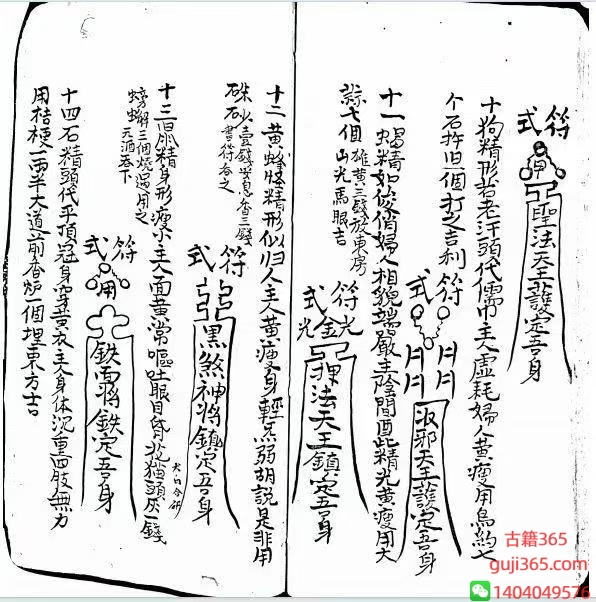 符式
聖法天王護定吾身
十狗精形若老汗頭代儒巾主人虛耗婦人黃瘦用烏約七
个石杵旧一個打之吉利
符式
收邪天王護定吾身
十一蝎精如俊俏婦人相貌端嚴主陰間酉此精光黃瘦用大
蒜七個
雄黃三錢放東房
山光馬眼吉
符式
金光光
押法天王鎮定吾身
十二黃蜂怪精形似归人主人黃瘦身輕炁弱胡說是非用
硃砂壹錢
石書符吞之
符式
黑煞神將鎮定吾身
十三
精身形瘦小主人面黃常嘔吐眼目昏花猫頭灰一錢
螃蟹三個燒過用之
元酒吞下
犬白合研
符式
鉄霄將鉄定吾身
十四石精頭代平頂冠身穿黃衣主人身体沉重四肢無力
用桔梗一兩半大道前香炉一個埋東方吉
古籍365
guji365.com
1404049576